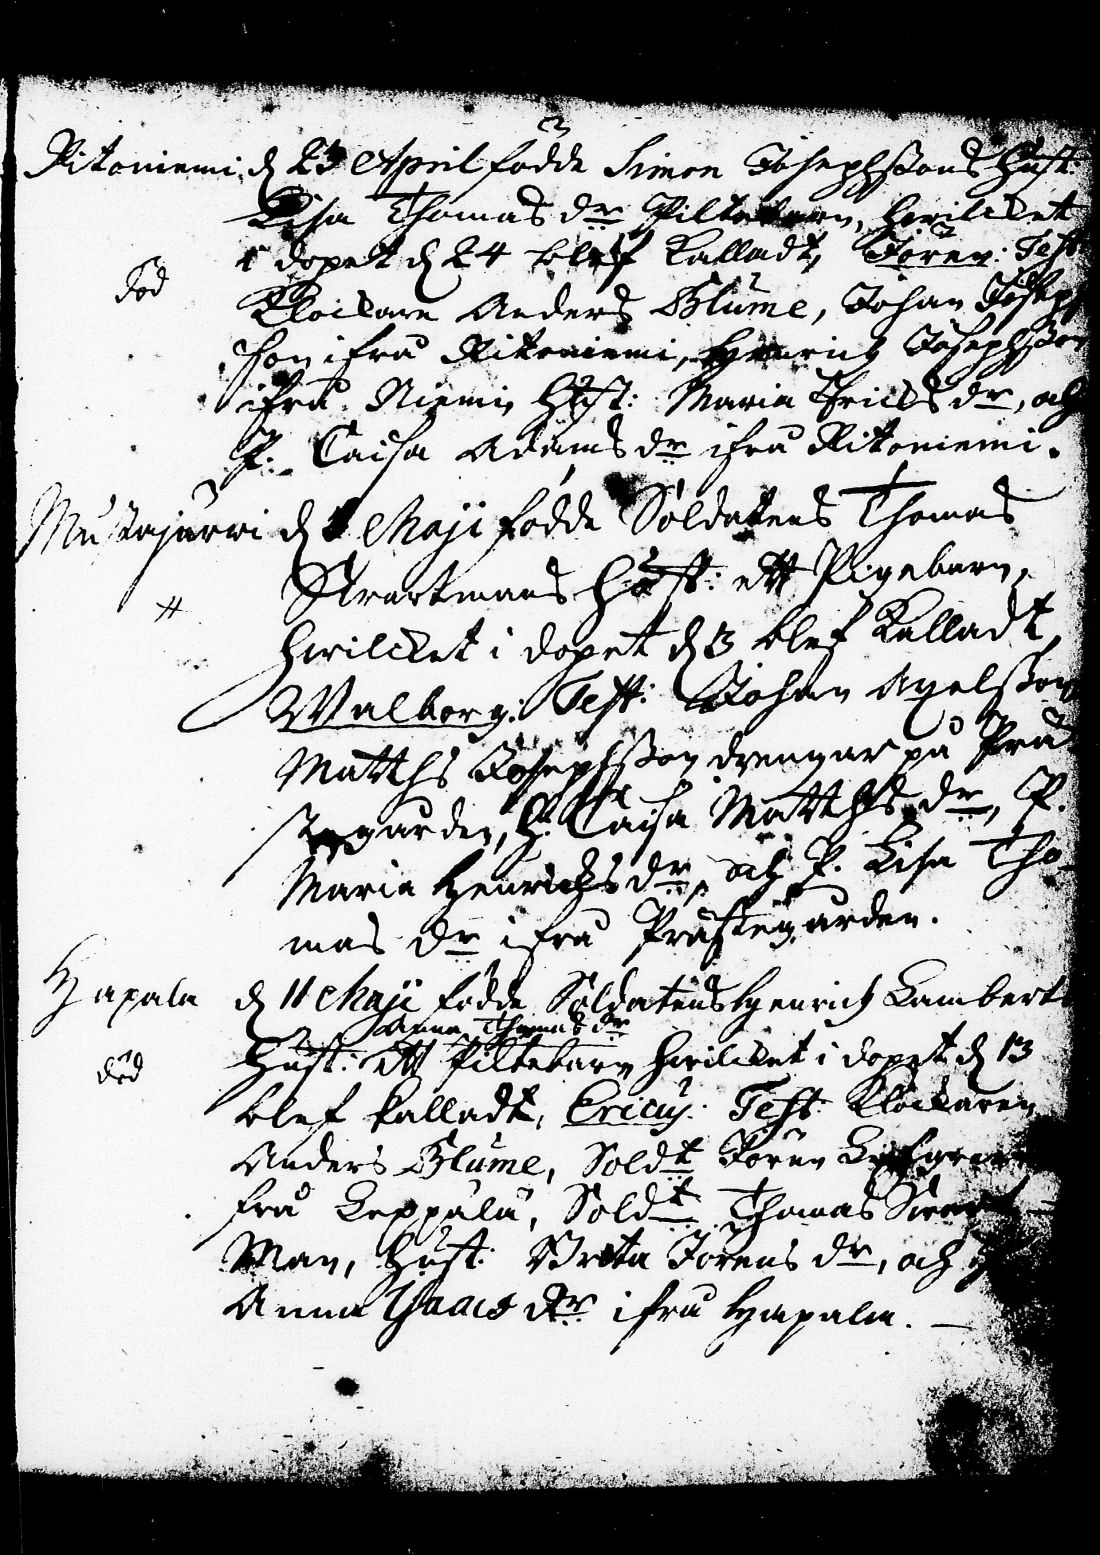 Ritoniemi d 23 April fodde Simon Josephssons Hust:
Lisa Thomas dr Piltebarn, hwilcket
i dopet d 24 blef Kalladt, Jören: Test
död
Klockare Anders Blume, Johan Joseph
son ifrå Ritoniemi, Henrich Josephsson
ifrå Niemi, Hust: Maria Erichs dr, och
P. Caisa Adams dr ifrå Ritoniemi.
Mustajärwi d Maji födde Soldatens Thomas
Swartmans Hust: ett Pigebarn,
hwilcket i dopet d 3 blef Kalladt,
Walborg. Test: Johan Axelsson
Matths Josephsson drengar på Prä
stegården, H. Caisa Matths dr, P.
Maria Henrichs dr, och P. Lisa Tho-
mas dr ifrå Prästegården.
Hapala d 11 Maji födde Soldatens Henrich Lamberts
Anna Thomas dr
Hust: ett Piltebarn hwilcket i dopet d 13
död
blef kalladt, Ericus. Test: Klockaren
Anders Blume, Soldt Jören
frå Leppälä, Soldt Thomas Swart-
Man, Hust: Brita Jörens dr, och
Anna Isaacs dr ifrå Hapala.